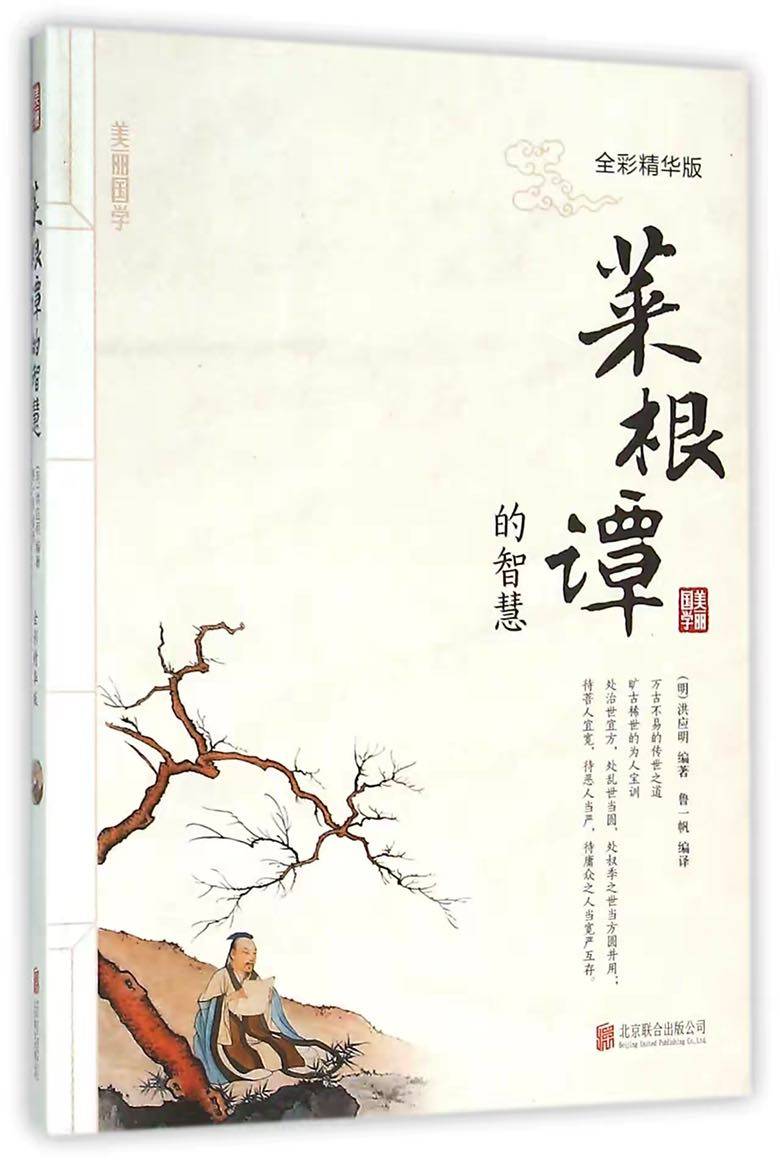 美丽国学
全彩精华版
菜根谭
的智慧
美丽
国学
(明)洪应明 编著 鲁一帆 编译
万古不易的传世之道
旷古稀世的为人宝训
处治世宜方,处乱世当圆,处叔季之世当方圆并用;
待善人宜宽,待恶人当严,待庸众之人当宽严互存。
北京联合出版公司
Beijing United Publishing Co.,Ltd.
菜根谭的智慧
(明)洪应明 编著
全彩精华版